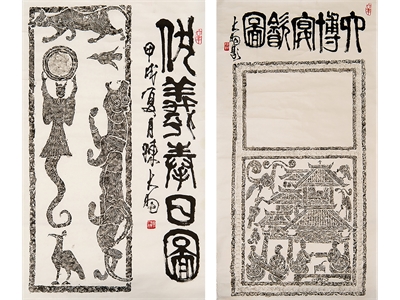 伏羲奉日圖
甲戌夏月陳大羽
六博宴飲圖
大羽